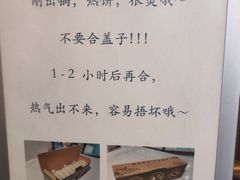 刚出锅，热饼，很烫哦～
不要合盖子!!!
1-2 小时后再合，
热气出不来，容易捂坏哦～